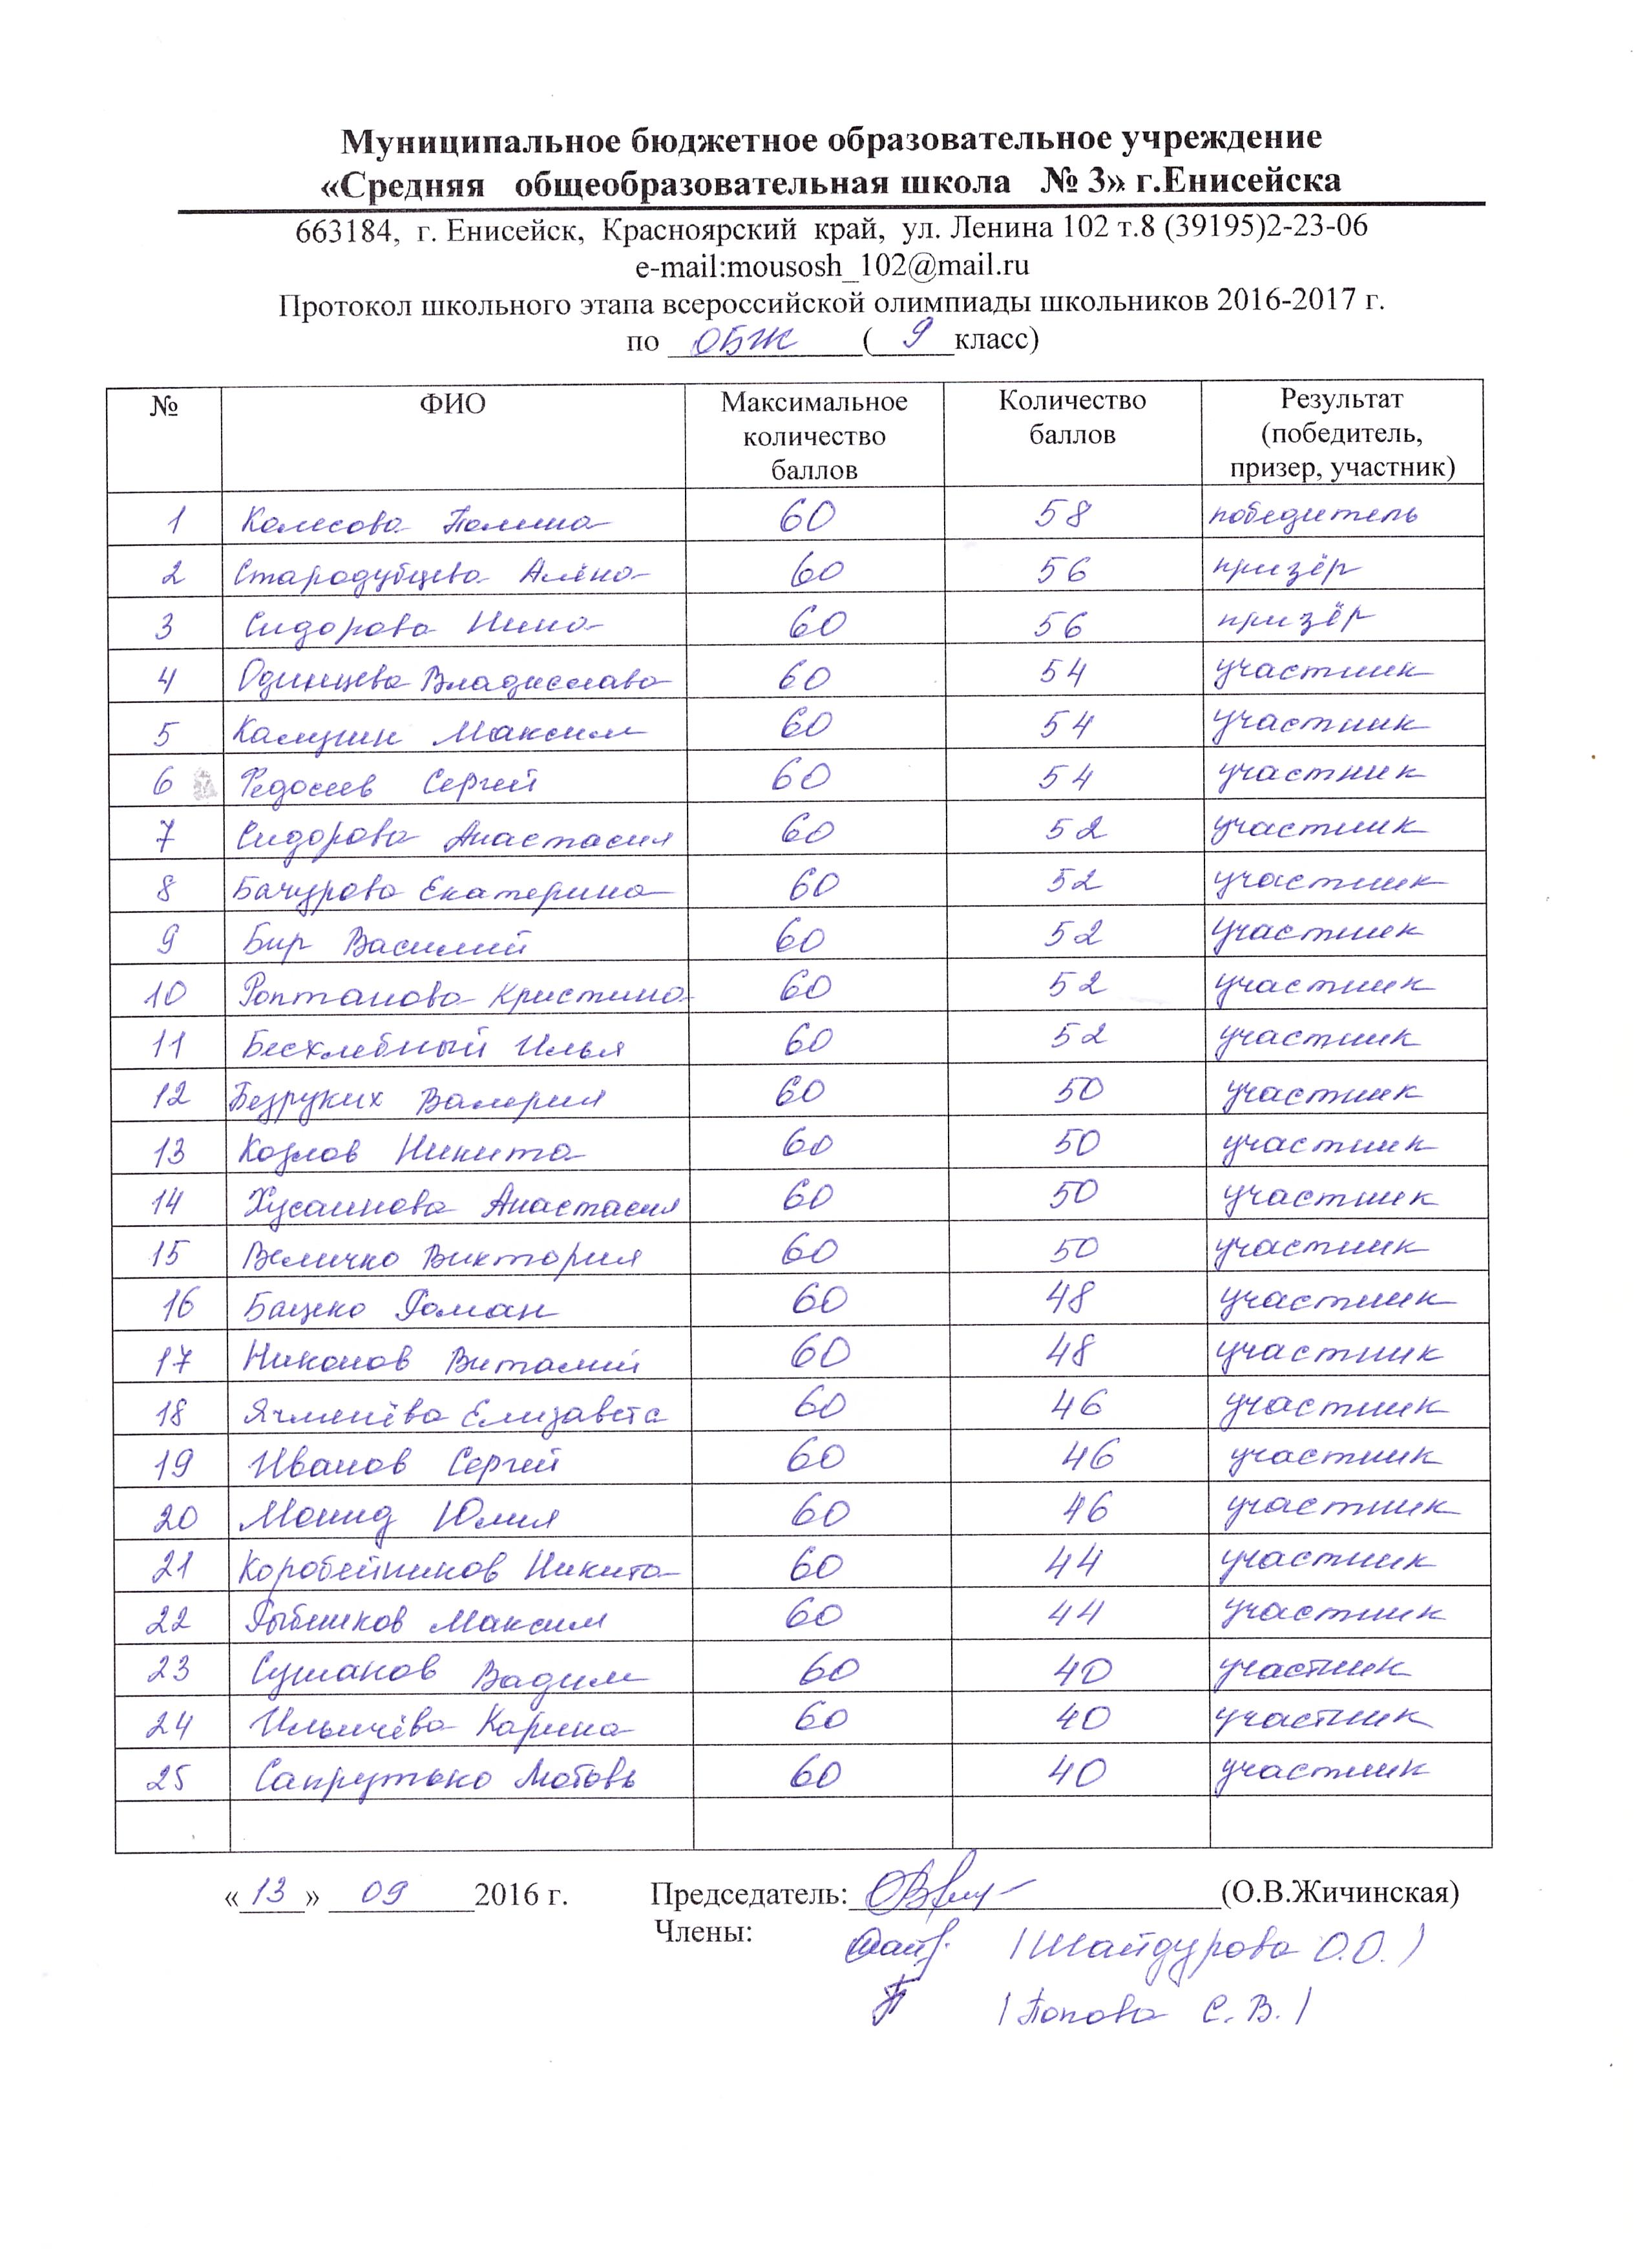 Муниципальное бюджетное образовательное учреждение
«Средняя общеобразовательная школа № 3» г.Енисейска
663184, г. Енисейск, Красноярский край, ул. Ленина 102 т.8 (39195)2-23-06
e-mail:mousosh_102@mail.ru
Протокол школьного этапа всероссийской олимпиады школьников 2016-2017 г.
по ОБЖ ( 9 класс)
№ ФИО Максимальное количество баллов Количество баллов Результат (победитель, призер, участник)
1 Колесова Полина 60 58 победитель
2 Стародубцева Алёна 60 56 призёр
3 Сидорова Нина 60 56 призёр
4 Одинцева Владислава 60 54 участник
5 Калушин Максим 60 54 участник
6 Федосеев Сергей 60 54 участник
7 Сидорова Анастасия 60 52 участник
8 Бачурова Екатерина 60 52 участник
9 Бир Василий 60 52 участник
10 Роптанова Кристина 60 52 участник
11 Бесхлебный Илья 60 52 участник
12 Безруких Валерия 60 50 участник
13 Козлов Никита 60 50 участник
14 Хусаинова Анастасия 60 50 участник
15 Величко Виктория 60 50 участник
16 Бацеко Роман 60 48 участник
17 Никонов Виталий 60 48 участник
18 Ячменёва Елизавета 60 46 участник
19 Иванов Сергей 60 46 участник
20 Юлия 60 46 участник
21 Коробейников Никита 60 44 участник
22 Рыбников Максим 60 44 участник
23 Сушаков Вадим 60 40 участник
24 Ильичёва Карина 60 40 участник
25 Сапрутько Любовь 60 40 участник
«13» 09 2016 г. Председатель: (О.В.Жичинская)
Члены: (Шайдурова О.О.)
/Попова С.В./